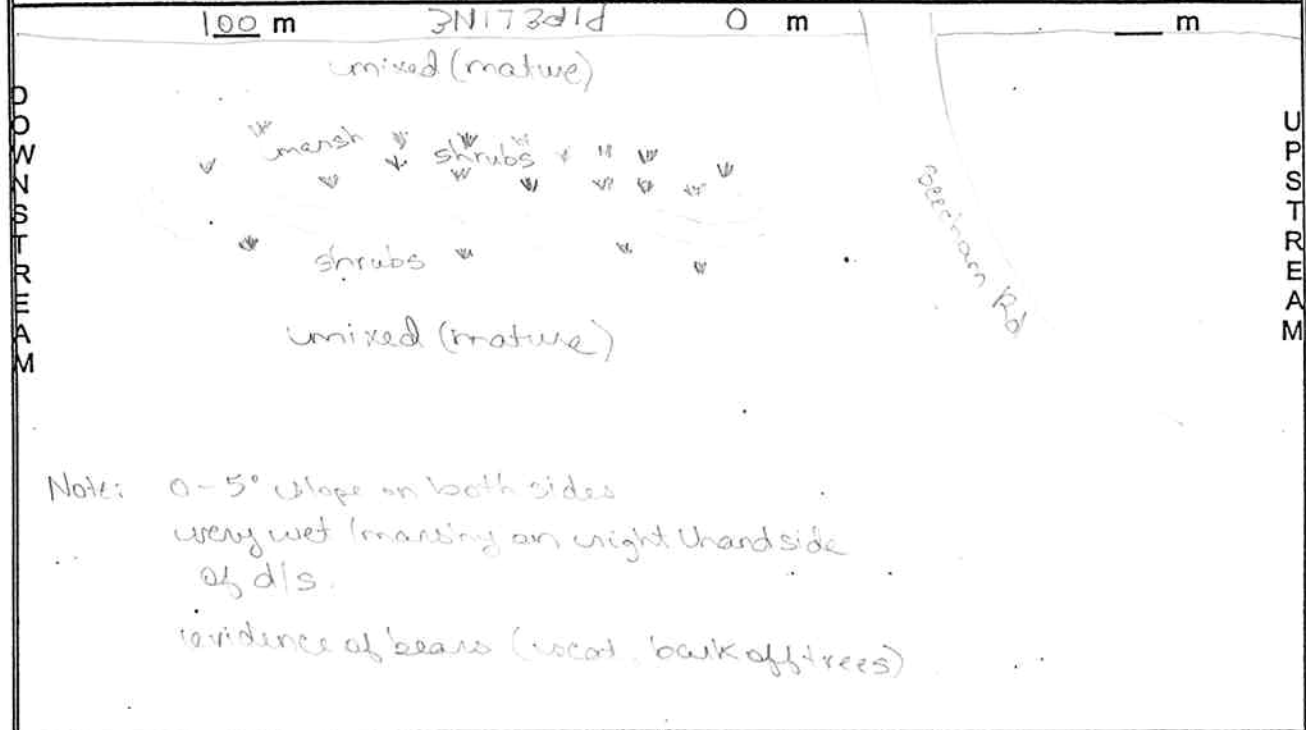 100 m PIPELINE 0 m m
mixed (mature)
marsh shrubs
shrubs
mixed (mature)
DOWNSTREAM
UPSTREAM
Rd
Note: 0-5° slope on both sides
very wet / marshy on right hand side
of d/s.
evidence of bears (scat, bark off trees)